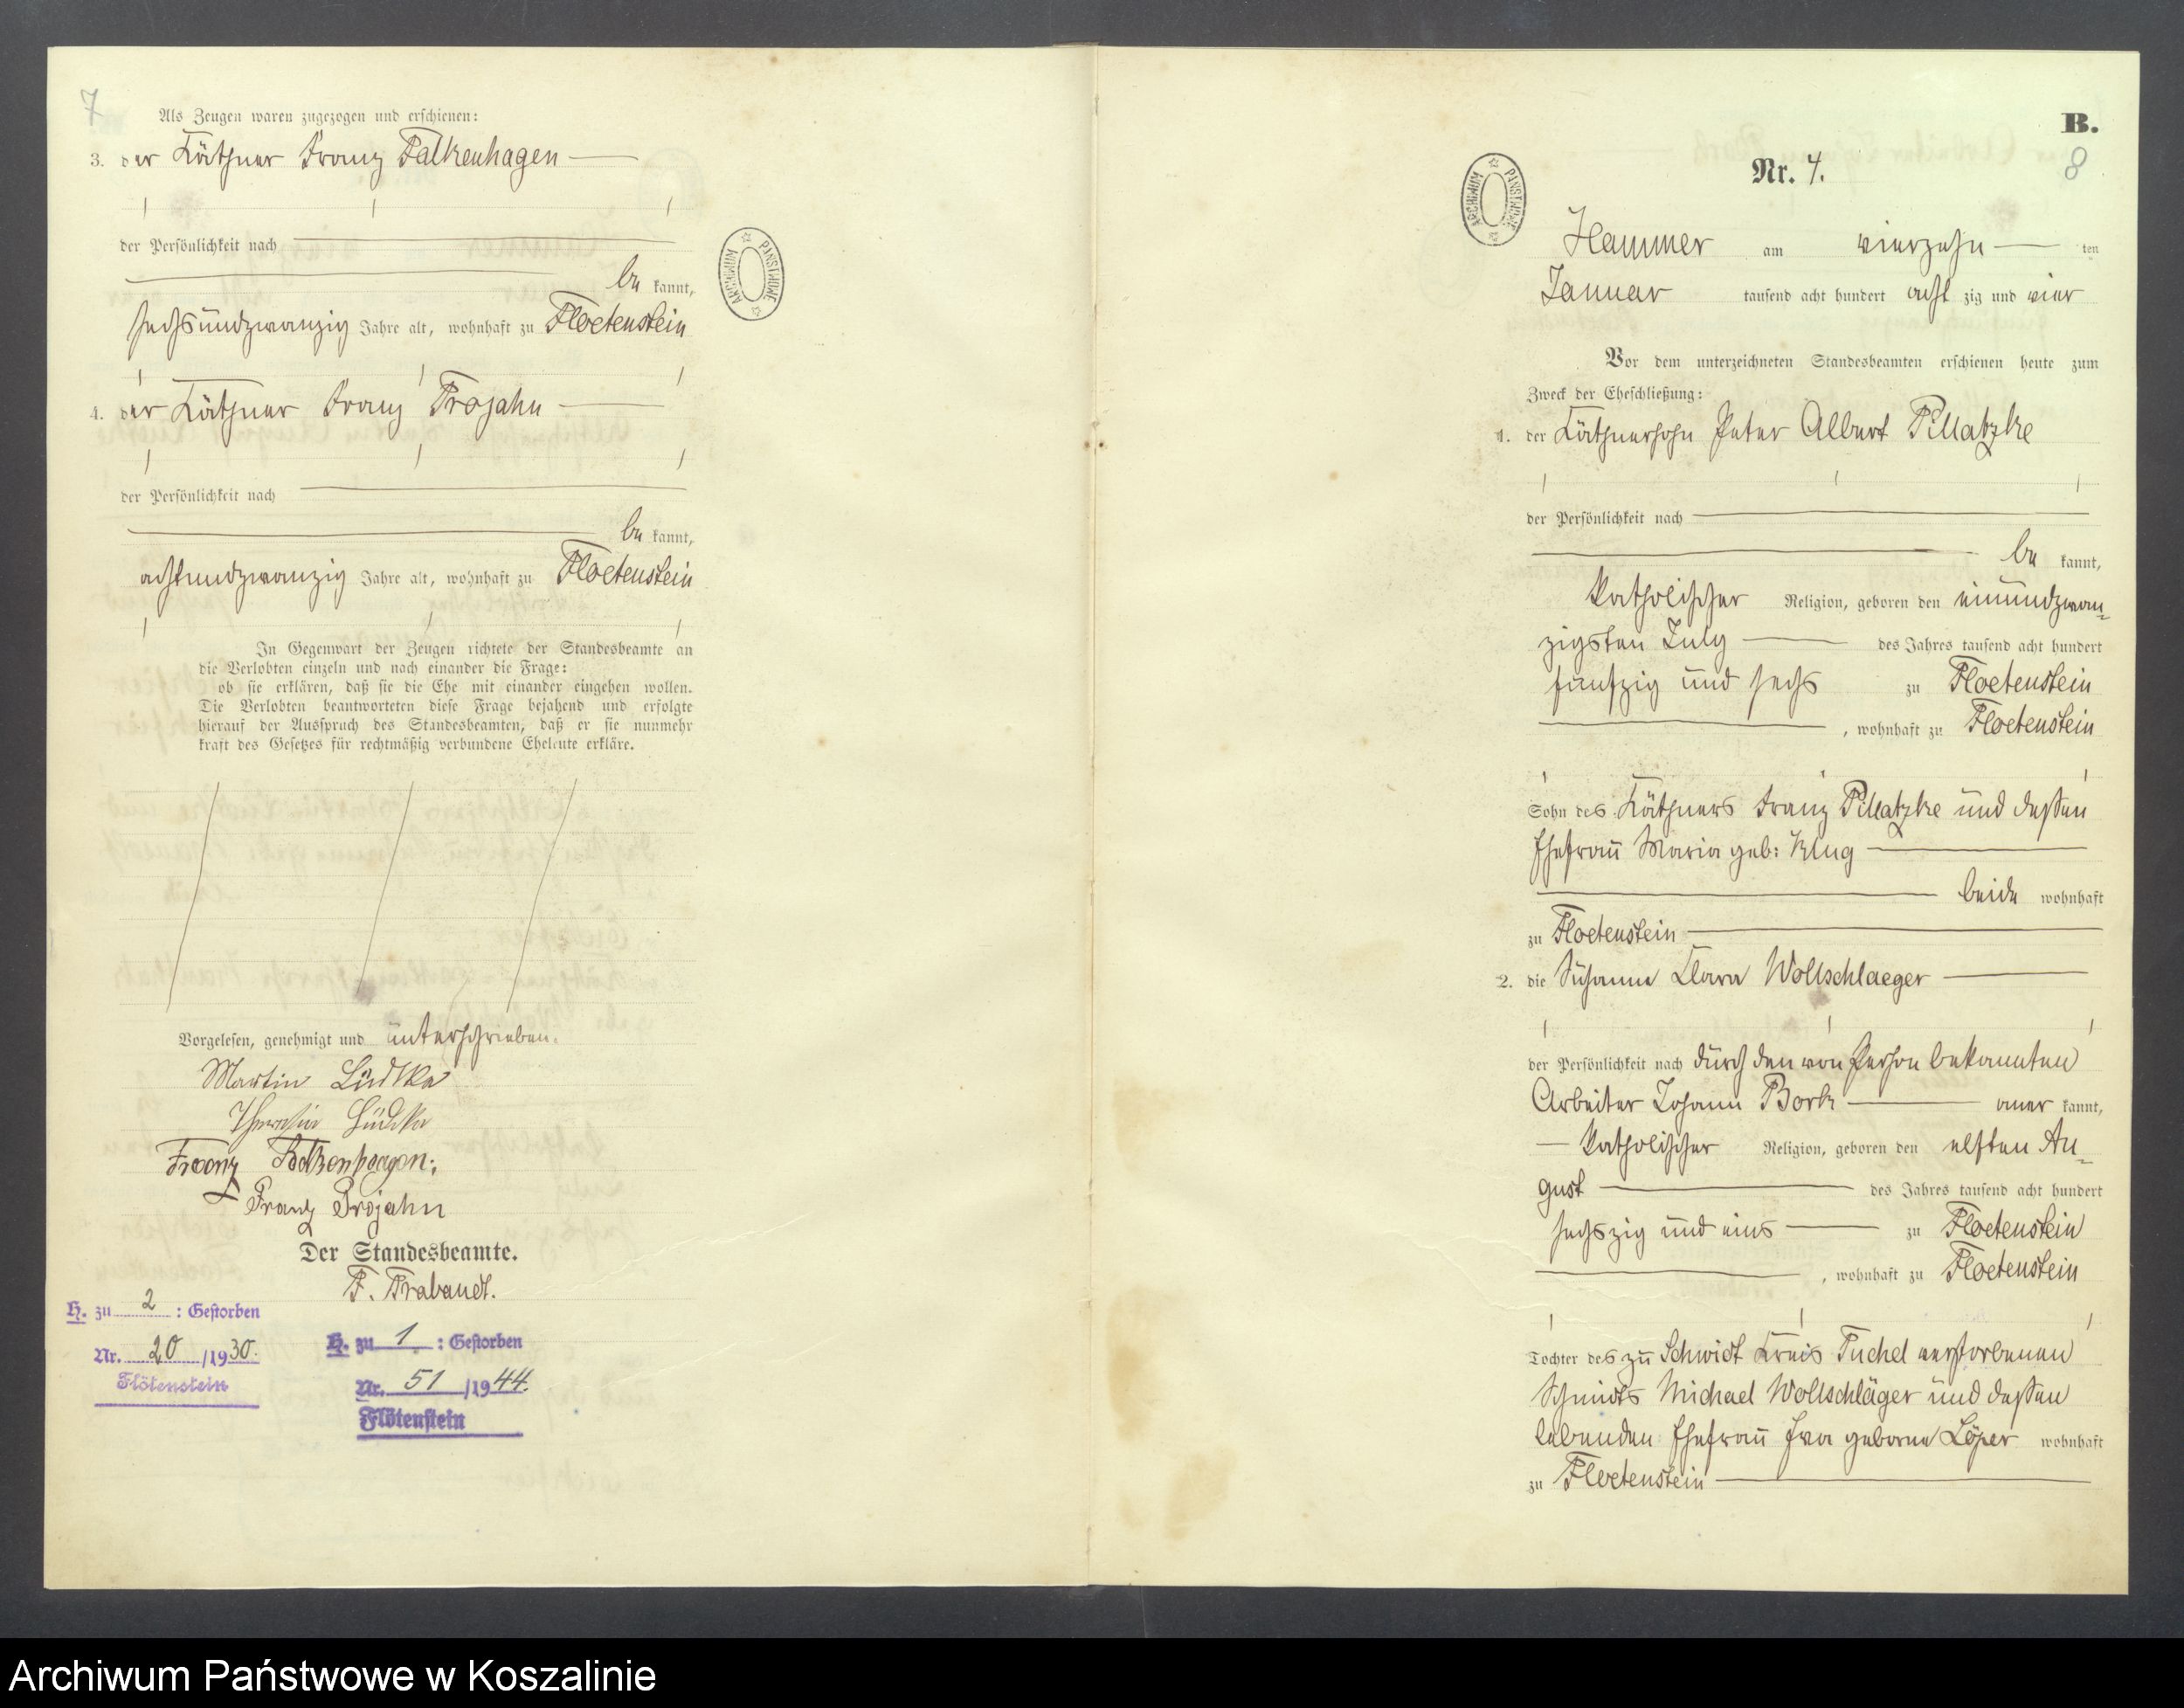 7
Als Zeugen waren zugezogen und erschienen:
3. der Käthner Franz Falkenhagen
der Persönlichkeit nach
be kannt,
sechsundzwanzig Jahre alt, wohnhaft zu Floetenstein
4. der Käthner Franz Trojahn
der Persönlichkeit nach
be kannt,
achtundzwanzig Jahre alt, wohnhaft zu Floetenstein
In Gegenwart der Zeugen richtete der Standesbeamte an
die Verlobten einzeln und nach einander die Frage:
ob sie erklären, daß sie die Ehe mit einander eingehen wollen.
Die Verlobten beantworteten diese Frage bejahend und erfolgte
hierauf der Ausspruch des Standesbeamten, daß er sie nunmehr
kraft des Gesetzes für rechtmäßig verbundene Eheleute erkläre.
Vorgelesen, genehmigt und unterschrieben.
Martin Lüdtke
Theresia Lüdtke
Franz Falkenhagen
Franz Trojahn
Der Standesbeamte.
F. Trabandt.
H. zu 2 : Gestorben
Nr. 20 /1930.
Flötenstein
H. zu 1 : Gestorben
Nr. 51 /1944.
Flötenstein
ARCHIWUM PAŃSTWOWE
B.
8
Nr. 4.
ARCHIWUM PAŃSTWOWE
Hammer am vierzehn ten
Januar tausend acht hundert acht zig und vier
Vor dem unterzeichneten Standesbeamten erschienen heute zum
Zweck der Eheschließung:
1. der Käthnersohn Peter Albert Pillatzke
der Persönlichkeit nach
be kannt,
katholischer Religion, geboren den einundzwan-
zigsten July des Jahres tausend acht hundert
fünfzig und sechs zu Floetenstein
, wohnhaft zu Floetenstein
Sohn des Käthners Franz Pillatzke und dessen
Ehefrau Maria geb: Klug
beide wohnhaft
zu Floetenstein
2. die Susanna Clara Wollschlaeger
der Persönlichkeit nach durch den von Person bekannten
Arbeiter Johann Bork aner kannt,
katholischer Religion, geboren den elften Au-
gust des Jahres tausend acht hundert
sechszig und eins zu Floetenstein
, wohnhaft zu Floetenstein
Tochter des zu Schwidt Kreis Tuchel verstorbenen
Schmidts Michael Wollschläger und dessen
lebenden Ehefrau Eva geborne Löper wohnhaft
zu Floetenstein
Archiwum Państwowe w Koszalinie